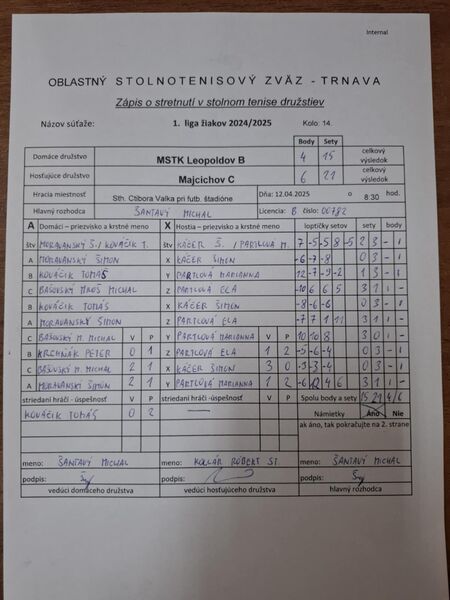 Internal
OBLASTNÝ STOLNOTENISOVÝ ZVÄZ - TRNAVA
Zápis o stretnutí v stolnom tenise družstiev
Názov súťaže: 1. liga žiakov 2024/2025 Kolo: 14.
Body Sety
Domáce družstvo MSTK Leopoldov B 4 15 celkový výsledok
Hosťujúce družstvo Majcichov C 6 21 celkový výsledok
Hracia miestnosť Sth. Ctibora Valka pri futb. štadióne Dňa: 12.04.2025 o 8:30 hod.
Hlavný rozhodca ŠANTAVÝ MICHAL Licencia: B číslo: 00782
A Domáci – priezvisko a krstné meno X Hostia – priezvisko a krstné meno loptičky setov sety body
štv MORAVANSKÝ Š. / KOVÁČIK T. štv KAČER Š. / PARTLOVÁ M. 7 -5 -5 8 -5 2 3 - 1
A MORAVANSKÝ ŠIMON X KAČER ŠIMON -6 -7 -8 0 3 - 1
B KOVÁČIK TOMÁŠ Y PARTLOVÁ MARIANNA 12 -7 -9 -2 1 3 - 1
C BAŠOVSKÝ MICHAL Z PARTLOVÁ ELA -10 6 6 5 3 1 1 -
B KOVÁČIK TOMÁŠ X KAČER ŠIMON -8 -6 -6 0 3 - 1
A MORAVANSKÝ ŠIMON Z PARTLOVÁ ELA -7 7 1 11 3 1 1 -
C BAŠOVSKÝ M. MICHAL V P Y PARTLOVÁ MARIANNA V P 10 10 8 3 0 1 -
B KRCHNÁK PETER 0 1 Z PARTLOVÁ ELA 1 2 -5 -6 -4 0 3 - 1
C BAŠOVSKÝ M. MICHAL 2 1 X KAČER ŠIMON 3 0 -9 -3 -4 0 3 - 1
A MORAVANSKÝ ŠIMON 2 1 Y PARTLOVÁ MARIANNA 1 2 -6 12 4 6 3 1 1 -
striedaní hráči - úspešnosť V P striedaní hráči - úspešnosť V P Spolu body a sety 15 21 4/6
KOVÁČIK TOMÁŠ 0 2 — Námietky Áno Nie
ak áno, tak pokračujte na 2. strane
meno: ŠANTAVÝ MICHAL meno: KOLLÁR RÓBERT ST meno: ŠANTAVÝ MICHAL
podpis: podpis: podpis:
vedúci domáceho družstva vedúci hosťujúceho družstva hlavný rozhodca